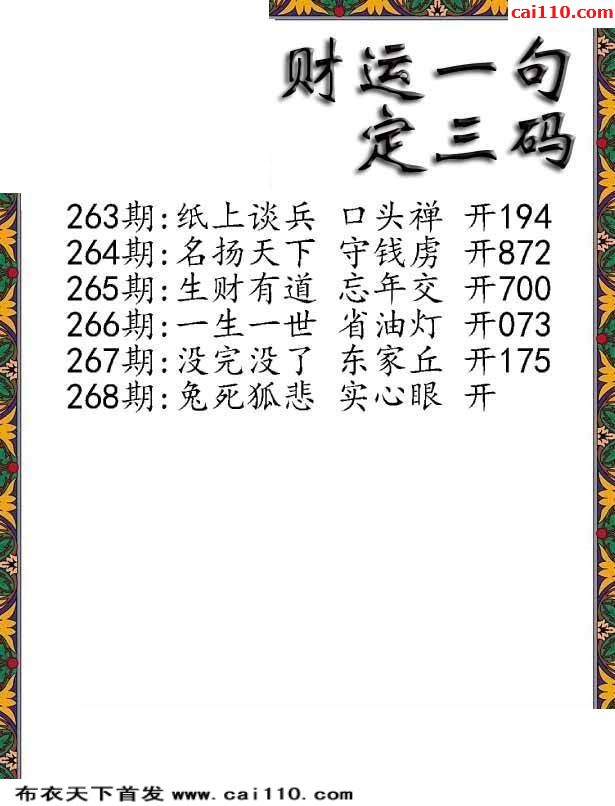 cai110.com
财运一句
定三码
263期:纸上谈兵 口头禅 开194
264期:名扬天下 守钱虏 开872
265期:生财有道 忘年交 开700
266期:一生一世 省油灯 开073
267期:没完没了 东家丘 开175
268期:兔死狐悲 实心眼 开
布衣天下首发 www.cai110.com